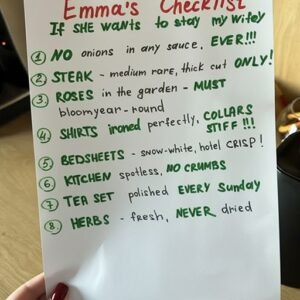 Emma's Checklist
If SHE WANTS to stay my Wifey
1 NO onions in any sauce, EVER!!!
2 STEAK - medium rare, thick cut ONLY!
3 ROSES in the garden - MUST
bloomyear-round
4 SHIRTS ironed perfectly, COLLARS
STIFF!!!
5 BEDSHEETS - snow-white, hotel CRISP!
6 KITCHEN spotless, NO CRUMBS
7 TEA SET polished EVERY Sunday
8 HERBS - fresh, NEVER dried